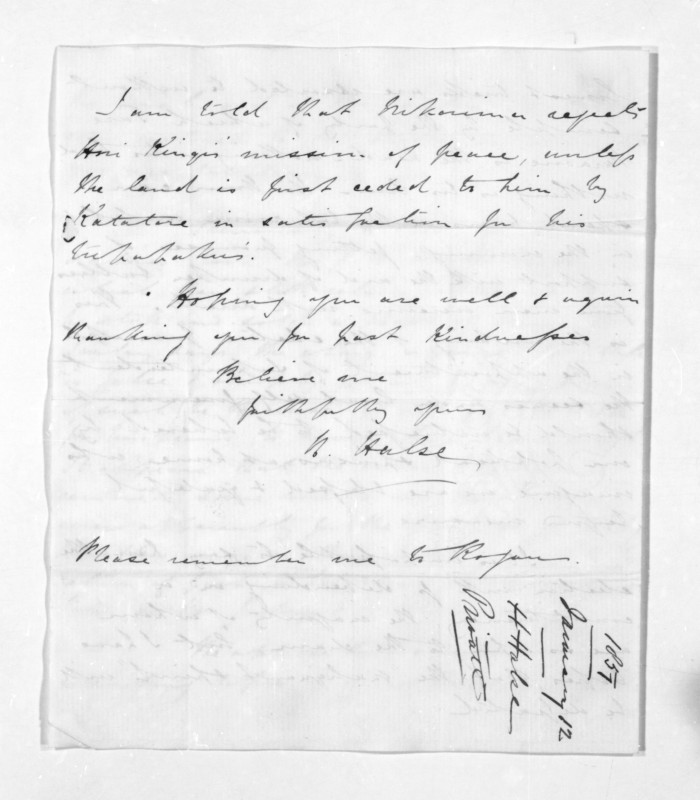 I am told that Nikorima rejects
Hori Kingi's mission of peace, unless
the land is first ceded to him by
Katatore in satisfaction for his
tupapaku's.
Hoping you are well & again
thanking you for past kindnesses
Believe me
faithfully yours
H. Halse
Please remember me to Rogan.
1857
January 12
H Halse
Private